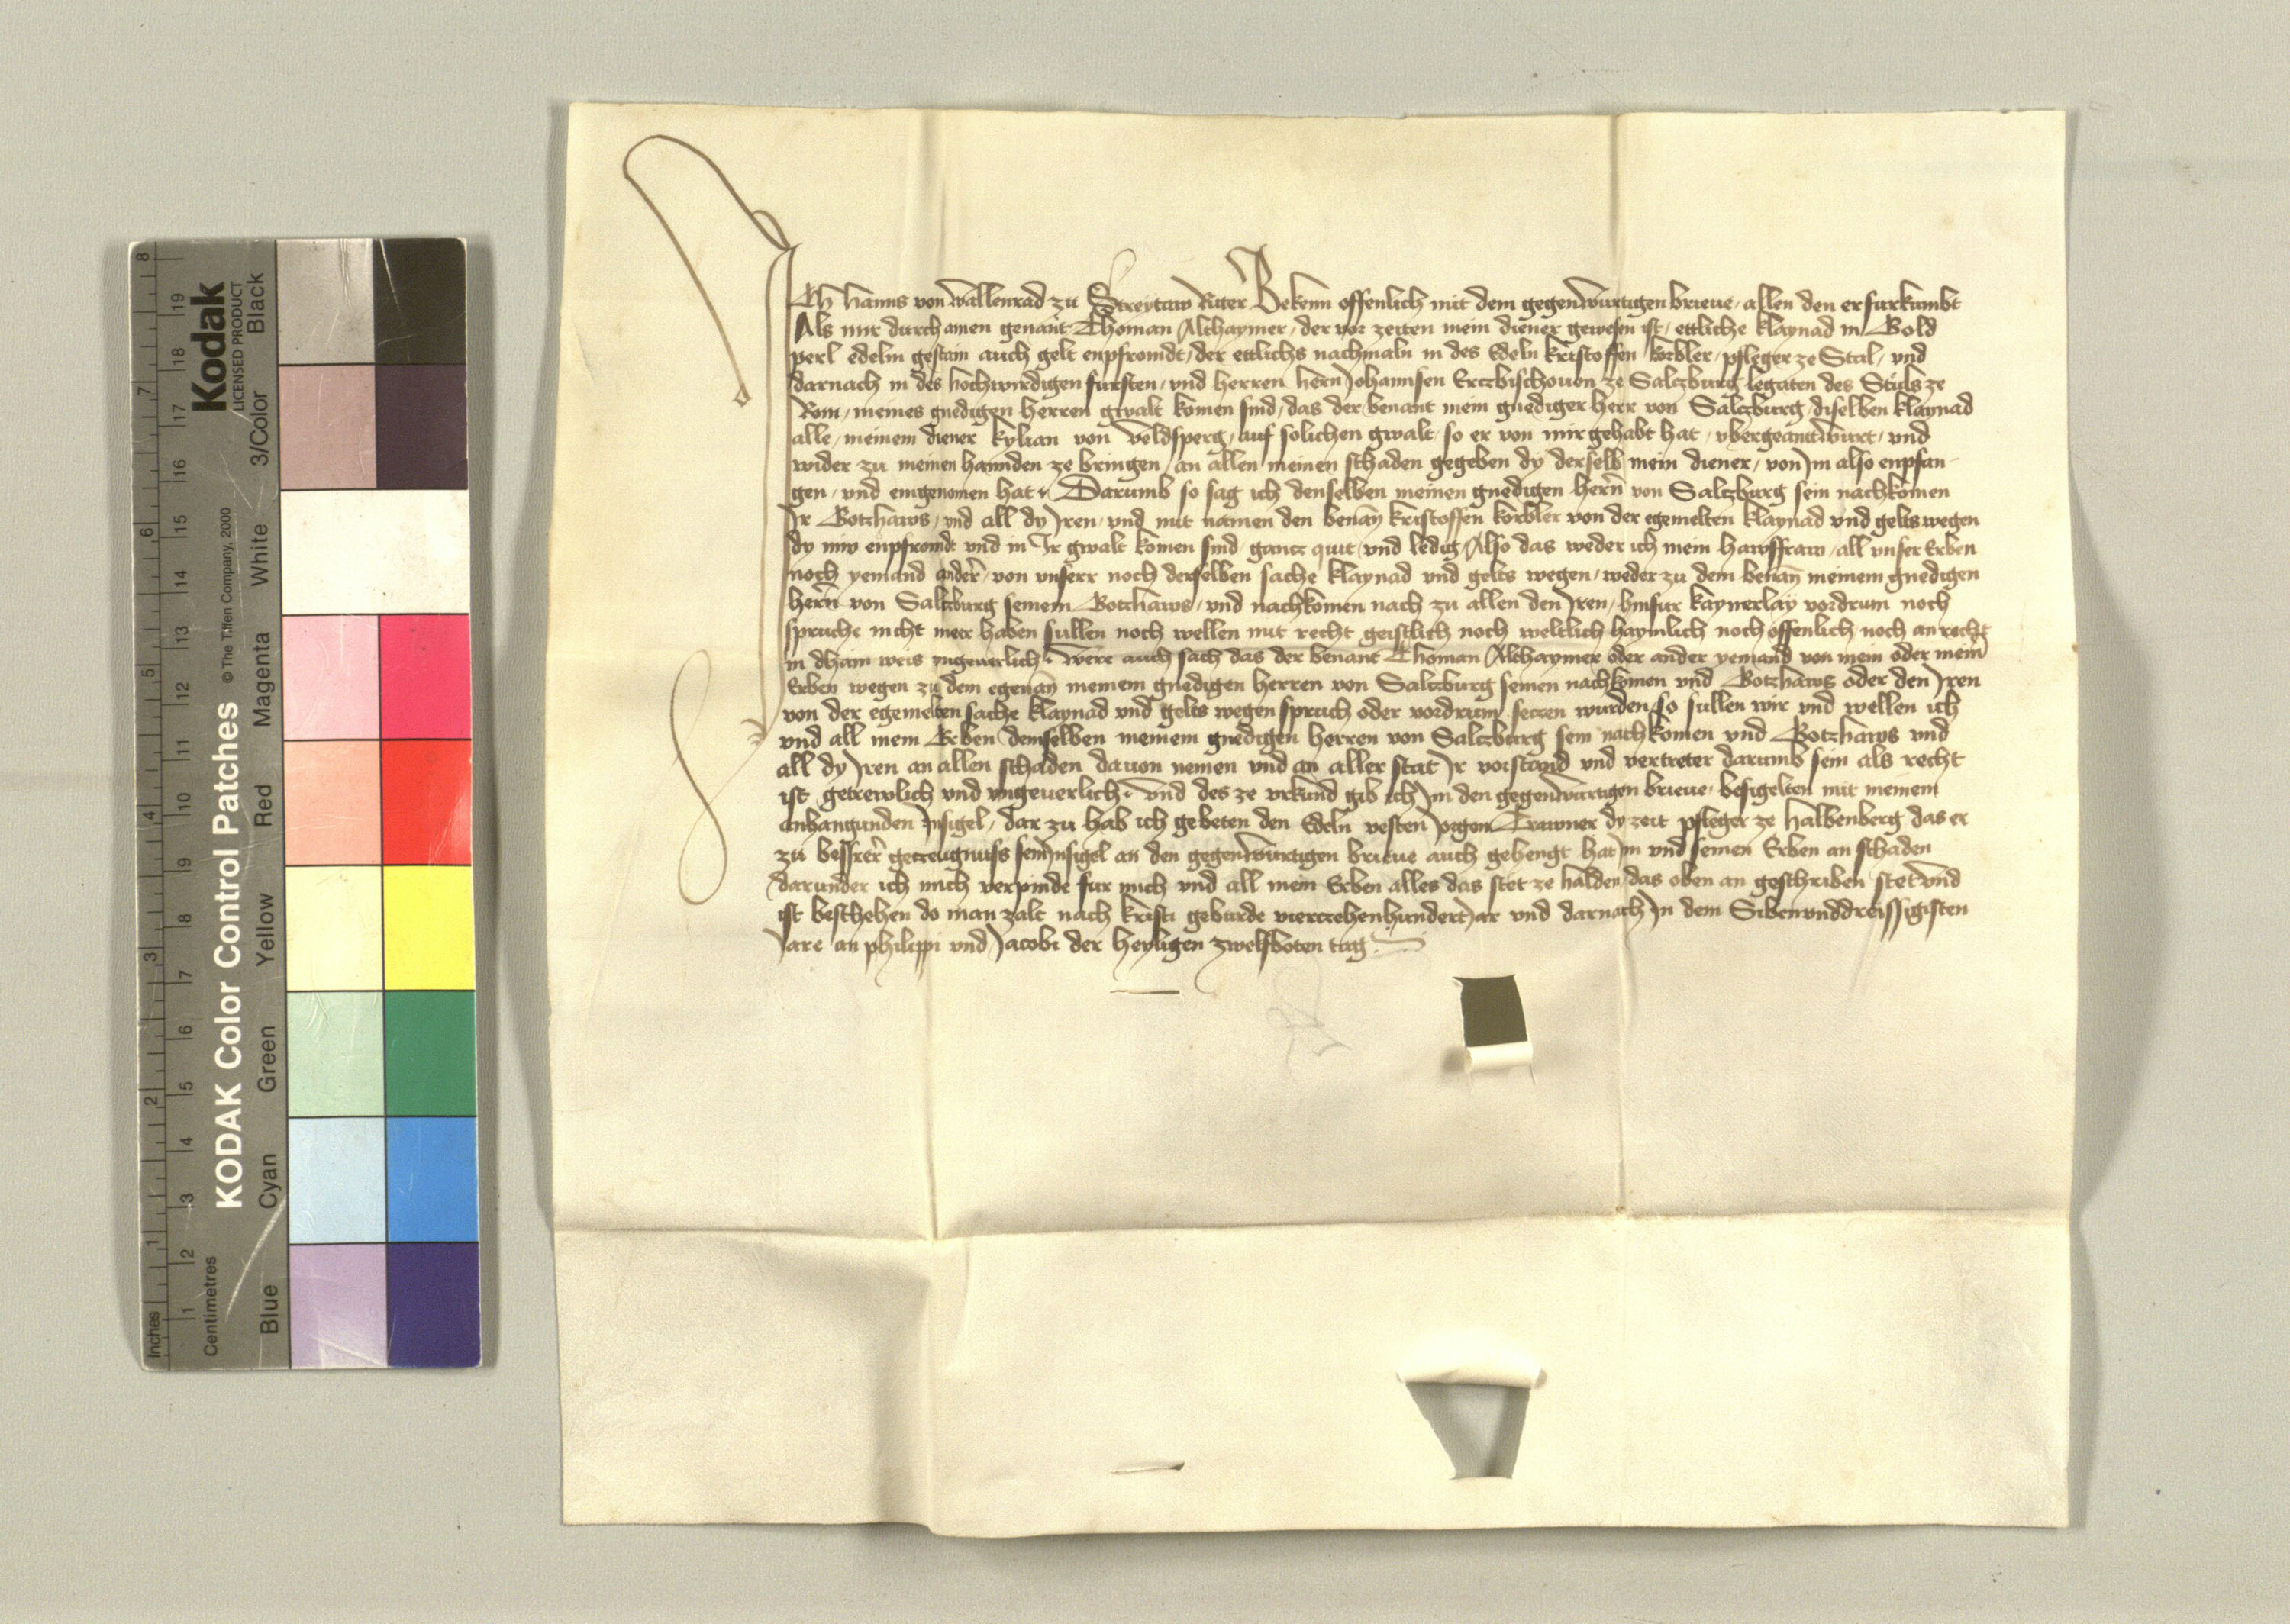 Ich Hanns von Wallenrad zu Streytaw Riter Bekenn offenlich mit dem gegenwurtigen brieue, allen den er furkumbt
Als mir durch ainen genant Thoman Althaymer, der vor zeiten mein diener gewesen ist, ettliche klaynad in Gold
perl edelm gestain auch gelt enpfromdt, der ettlichs nachmaln in des Edeln Kristoffen Korbler, pfleger ze Stal, vnd
darnach in des hochwirdigen fursten, vnd herren hern Johannsen Ertzbischouen ze Saltzburg legaten des Stuls ze
Rom, meines gnedigen herren gwalt komen sind, das der benant mein gnediger herr von Saltzburg, diselben klaynad
alle, meinem diener Kylian von Veldsperg, auf solichen gwalt, so er von mir gehabt hat, vbergeantwurt, vnd
wider zu meinen hannden ze bringen, an allen meinen schaden gegeben dy derselb mein diener, von Im also enpfan-
gen, vnd eingenomen hat. Darumb so sag ich denselben meinen gnedigen hern̄ von Saltzburg sein nachkomen
Ir Gotzhaws, vnd all dy Iren, vnd mit namen den benan̄ Kristoffen Korbler von der egemelten klaynad vnd gelts wegen
dy mir enpfromdt vnd in Ir gwalt komen sind gantz quit vnd ledig, Also das weder ich mein hawsfraw, all vnser Erben
noch yemand ander̄, von vnserr noch derselben sache klaynad vnd gelts wegen, weder zu dem benan̄ meinem gnedigen
hern̄ von Saltzburg seinem Gotzhaws, vnd nachkomen nach zu allen den Iren, hinfur kaynerlay vordrum noch
spruche nicht mer haben sullen noch wellen mit recht geistlich noch weltlich haymlich noch offenlich noch an recht
in dhain weis vngeuerlich. Were auch sach das der benant Thoman Althaymer oder ander yemand von mein oder mein̄
Erben wegen zu dem egenan̄ meinem gnedigen herren von Saltzburg seinen nachkomen vnd Gotzhaws oder den Iren
von der egemelten sache klaynad vnd gelts wegen spruch oder vordrum setzen wurden, so sullen wir vnd wellen ich
vnd all mein Erben demselben meinem gnedigen herren von Saltzburg sein nachkomen vnd Gotzhaws vnd
all dy Iren an allen schaden dauon nemen vnd an aller stat Ir vorstand vnd vertreter darumb sein als recht
ist getrewlich vnd vngeuerlich. Vnd des ze vrkund gib ich Im den gegenwurtigen brieue, besigelten mit meinem
anhangunden Insigel, dar zu hab ich gebeten den Edeln vesten Jorgen Trawner dy zeit pfleger ze Halbenberg das er
zu bessrer̄ getzeugnuss sein Insigel an den gegenwurtigen brieue auch gehengt hat Im vnd seinen Erben an schaden
darunder ich mich verpinde fur mich vnd all mein Erben alles das stet ze halden, das oben an geschriben stet vnd
ist beschehen do man zalt nach kristi geburde viertzehenhundert Iar vnd darnach In dem Sibenvnddreissigisten
Iare an philippi vnd Jacobi der heyligen zwelfboten tag
KODAK Color Control Patches
© The Tiffen Company, 2000
Kodak
LICENSED PRODUCT
Inches
Centimetres
Blue
Cyan
Green
Yellow
Red
Magenta
White
3/Color
Black
1 2 3 4 5 6 7 8
1 2 3 4 5 6 7 8 9 10 11 12 13 14 15 16 17 18 19